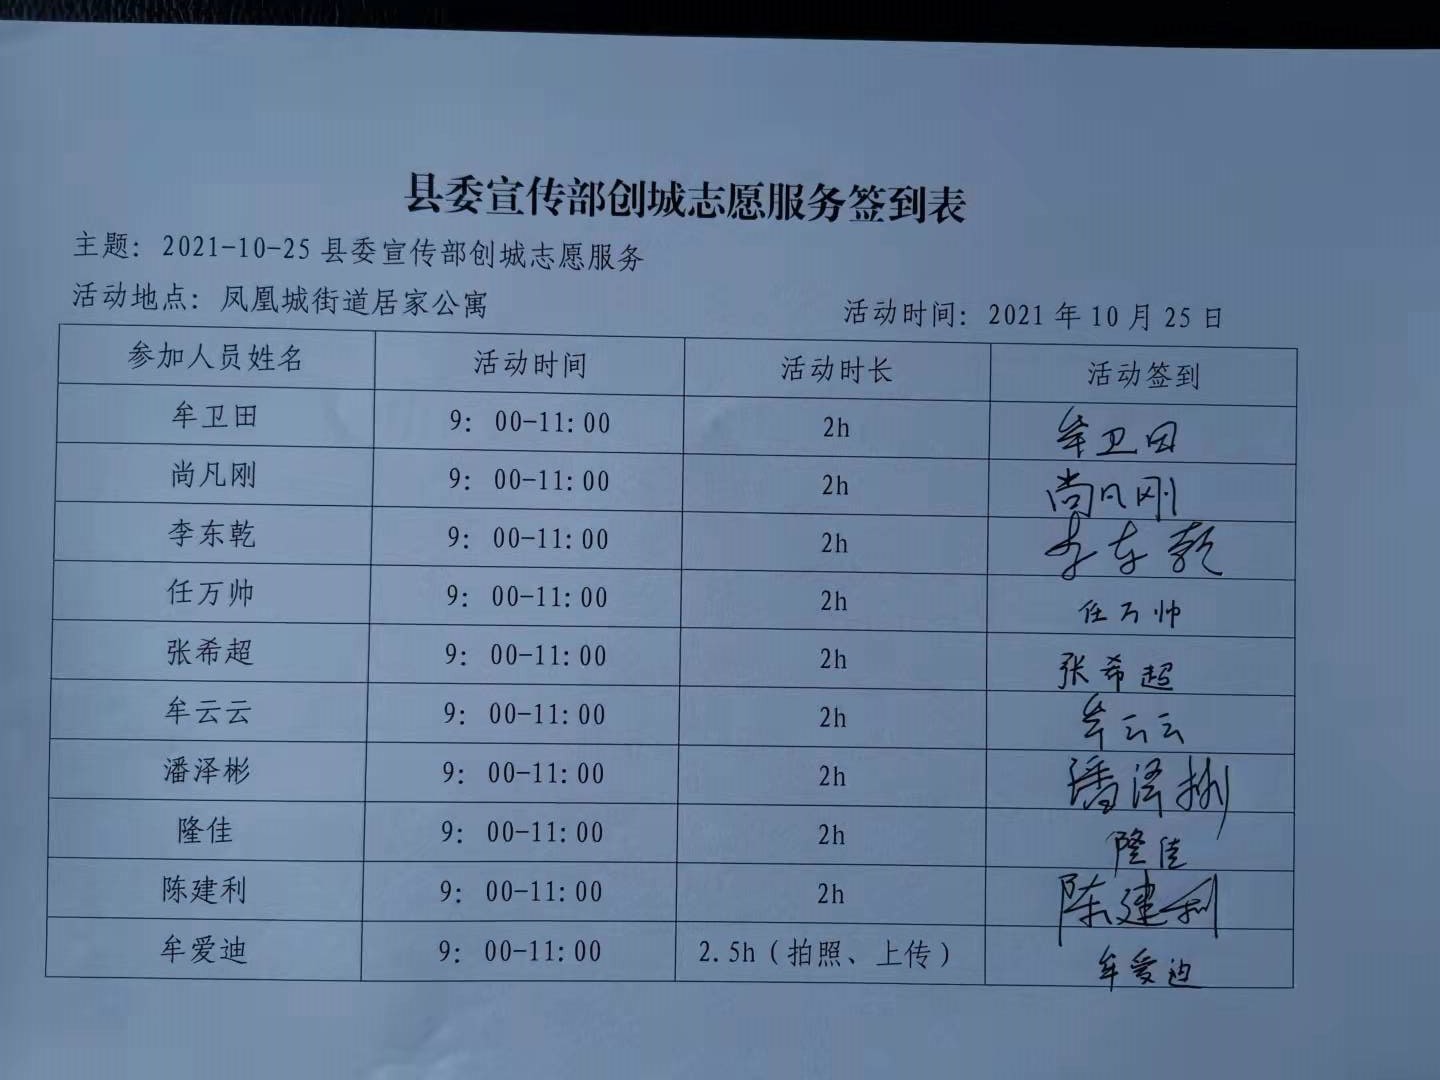 县委宣传部创城志愿服务签到表
主题：2021-10-25 县委宣传部创城志愿服务
活动地点：凤凰城街道居家公寓 活动时间：2021 年 10 月 25 日
参加人员姓名 活动时间 活动时长 活动签到
牟卫田 9：00-11:00 2h 牟卫田
尚凡刚 9：00-11:00 2h 尚凡刚
李东乾 9：00-11:00 2h 李东乾
任万帅 9：00-11:00 2h 任万帅
张希超 9：00-11:00 2h 张希超
牟云云 9：00-11:00 2h 牟云云
潘泽彬 9：00-11:00 2h 潘泽彬
隆佳 9：00-11:00 2h 隆佳
陈建利 9：00-11:00 2h 陈建利
牟爱迪 9：00-11:00 2.5h（拍照、上传） 牟爱迪